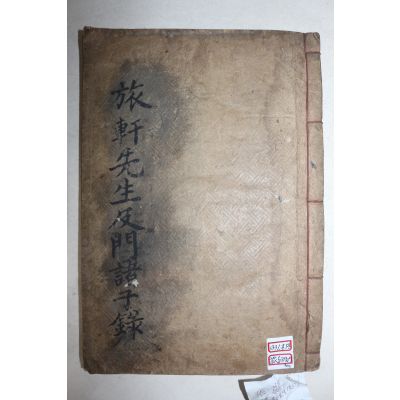 旅軒先生及門諸子錄